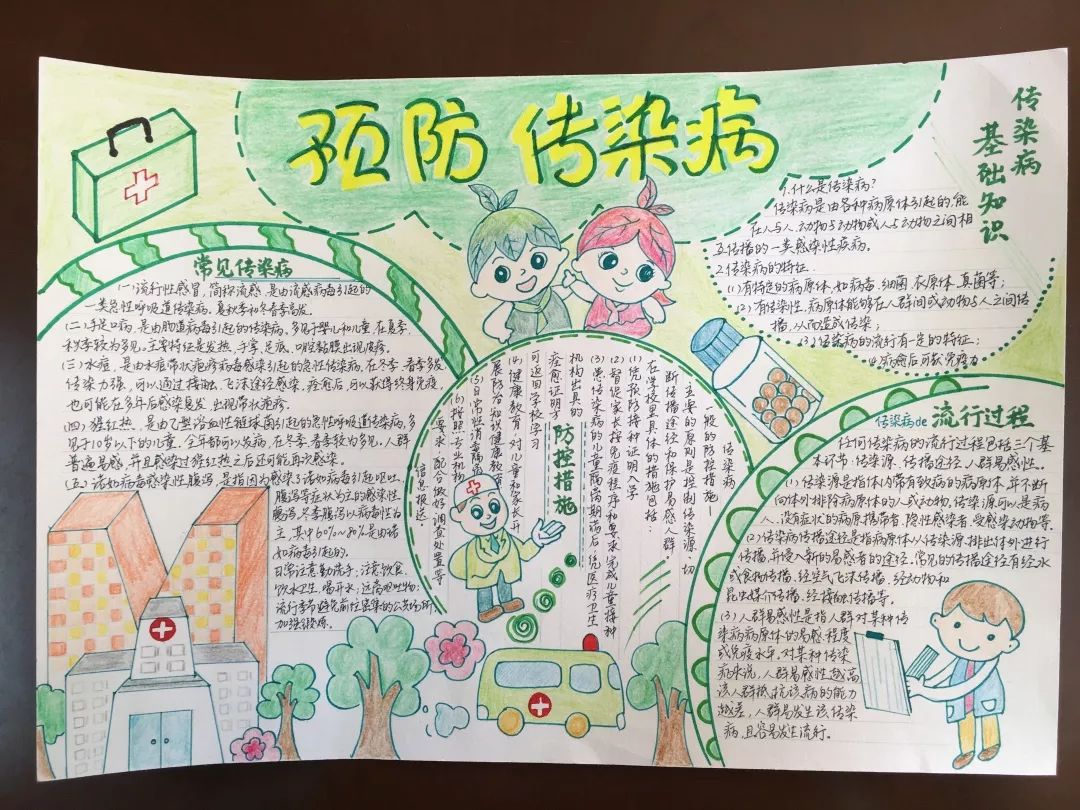 预防 传染病
传染病
基础知识
1.什么是传染病?
传染病是由各种病原体引起的,能
在人与人、动物与动物或人与动物之间相
互传播的一类感染性疾病。
2.传染病的特征.
(1)有特色的病原体,如病毒、细菌、衣原体、真菌等;
(2)有传染性,病原体能够在人群间或动物与人之间传
播,从而造成传染;
(3)传染病的流行有一定的特征;
(4)病愈后可获免疫力
常见传染病
(一)流行性感冒,简称流感,是由流感病毒引起的
一类急性呼吸道传染病,夏秋季和冬春季高发。
(二)手足口病,是由肠道病毒引起的传染病,多见于婴儿和儿童,在夏季、
秋季较为多见。主要特征是发热,手掌、足底、口腔黏膜出现皮疹。
(三)水痘,是由水痘带状疱疹病毒感染引起的急性传染病,在冬季、春季多发
传染力强,可以通过接触、飞沫途径感染,痊愈后,可以获得终身免疫,
也可能在多年后感染复发,出现带状疱疹。
(四)猩红热,是由乙型溶血性链球菌引起的急性呼吸道传染病,多
见于10岁以下的儿童,全年都可以发病,在冬季、春季较为多见,人群
普遍易感,并且感染过猩红热之后还可能再次感染。
(五)诺如病毒感染性腹泻,是指因为感染了诺如病毒引起呕吐、
腹泻等症状为主的感染性
腹泻,冬季腹泻以病毒性为
主,其中60%~70%是由诺
如病毒引起的。
日常注意勤洗手;注意饮食
饮水卫生,喝开水;远离呕吐物;
流行季节避免前往密集的公共场所,
加强锻炼。
防控措施
传染病
一般的防控措施——
主要的原则是控制传染源、切
断传播途径和保护易感人群
在学校里具体的措施包括:
(1)凭预防接种证明入学
(2)督促家长按免疫程序和要求完成儿童接种
(3)患传染病的儿童隔离期满后,凭医疗卫生
机构出具的
痊愈证明方
可返回学校学习
(4)健康教育,对儿童和家长开
展防治知识健康教育
(5)日常性消毒隔离
(6)按照专业机构
要求,配合做好调查处置等
信息报送
传染病de 流行过程
任何传染病的流行过程包括三个基
本环节:传染源、传播途径、人群易感性。
(1)传染源是指体内带有致病的病原体,并不断向
体外排除病原体的人或动物,传染源可以是病
人、没有症状的病原携带者、隐性感染者、受感染动物等.
(2)传染病传播途径是指病原体从传染源排出体外进行
传播,并侵入新的易感者的途径.常见的传播途径有经水
或食物传播、经空气飞沫传播、经动物和
昆虫媒介传播、经接触传播等。
(3)人群易感性是指人群对某种传
染病病原体的易感程度
或免疫水平。对某种传染
病来说,人群易感性越高
该人群抵抗该病的能力
越差,人群易发生该传染
病,且容易发生流行。